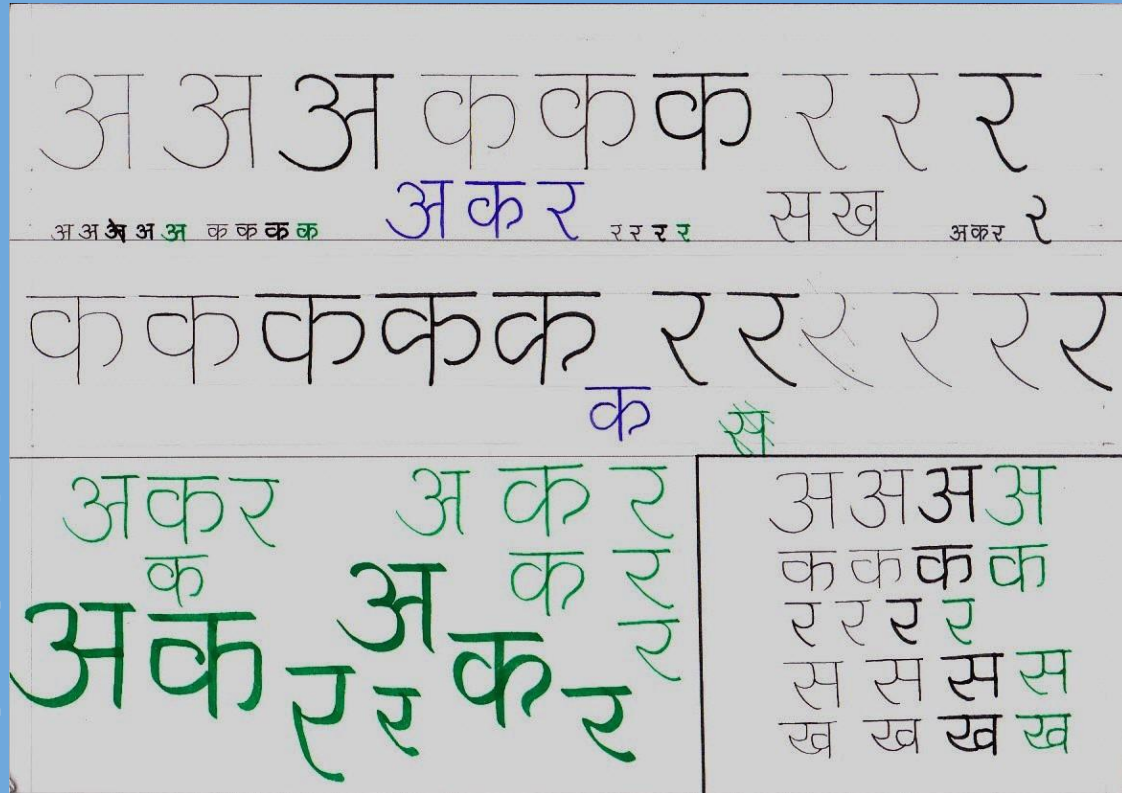 अ अ अ क क क र र र
अ अ अ अ अ क क क क अ क र र र र र स ख अकर र
क क क क क र र र र र र
क स
अकर अ क र
क क र
अ क र
अ क र र क र
अ अ अ अ
क क क क
र र र र
स स स स
ख ख ख ख